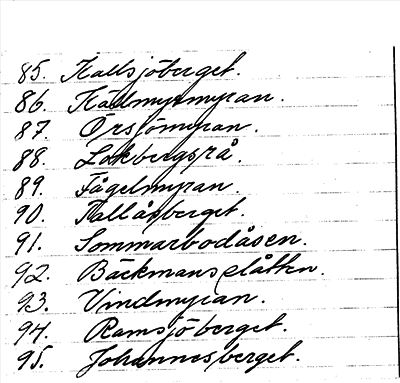 85. Kallsjöberget.
86. Kädmyrmyran.
87. Örsjömyran.
88. Lokbergsrå.
89. Fågelmyran.
90. Tallåsberget.
91. Sommarbodåsen.
92. Bäckmansslåtten.
93. Vindmyran.
94. Ramsjöberget.
95. Johannesberget.